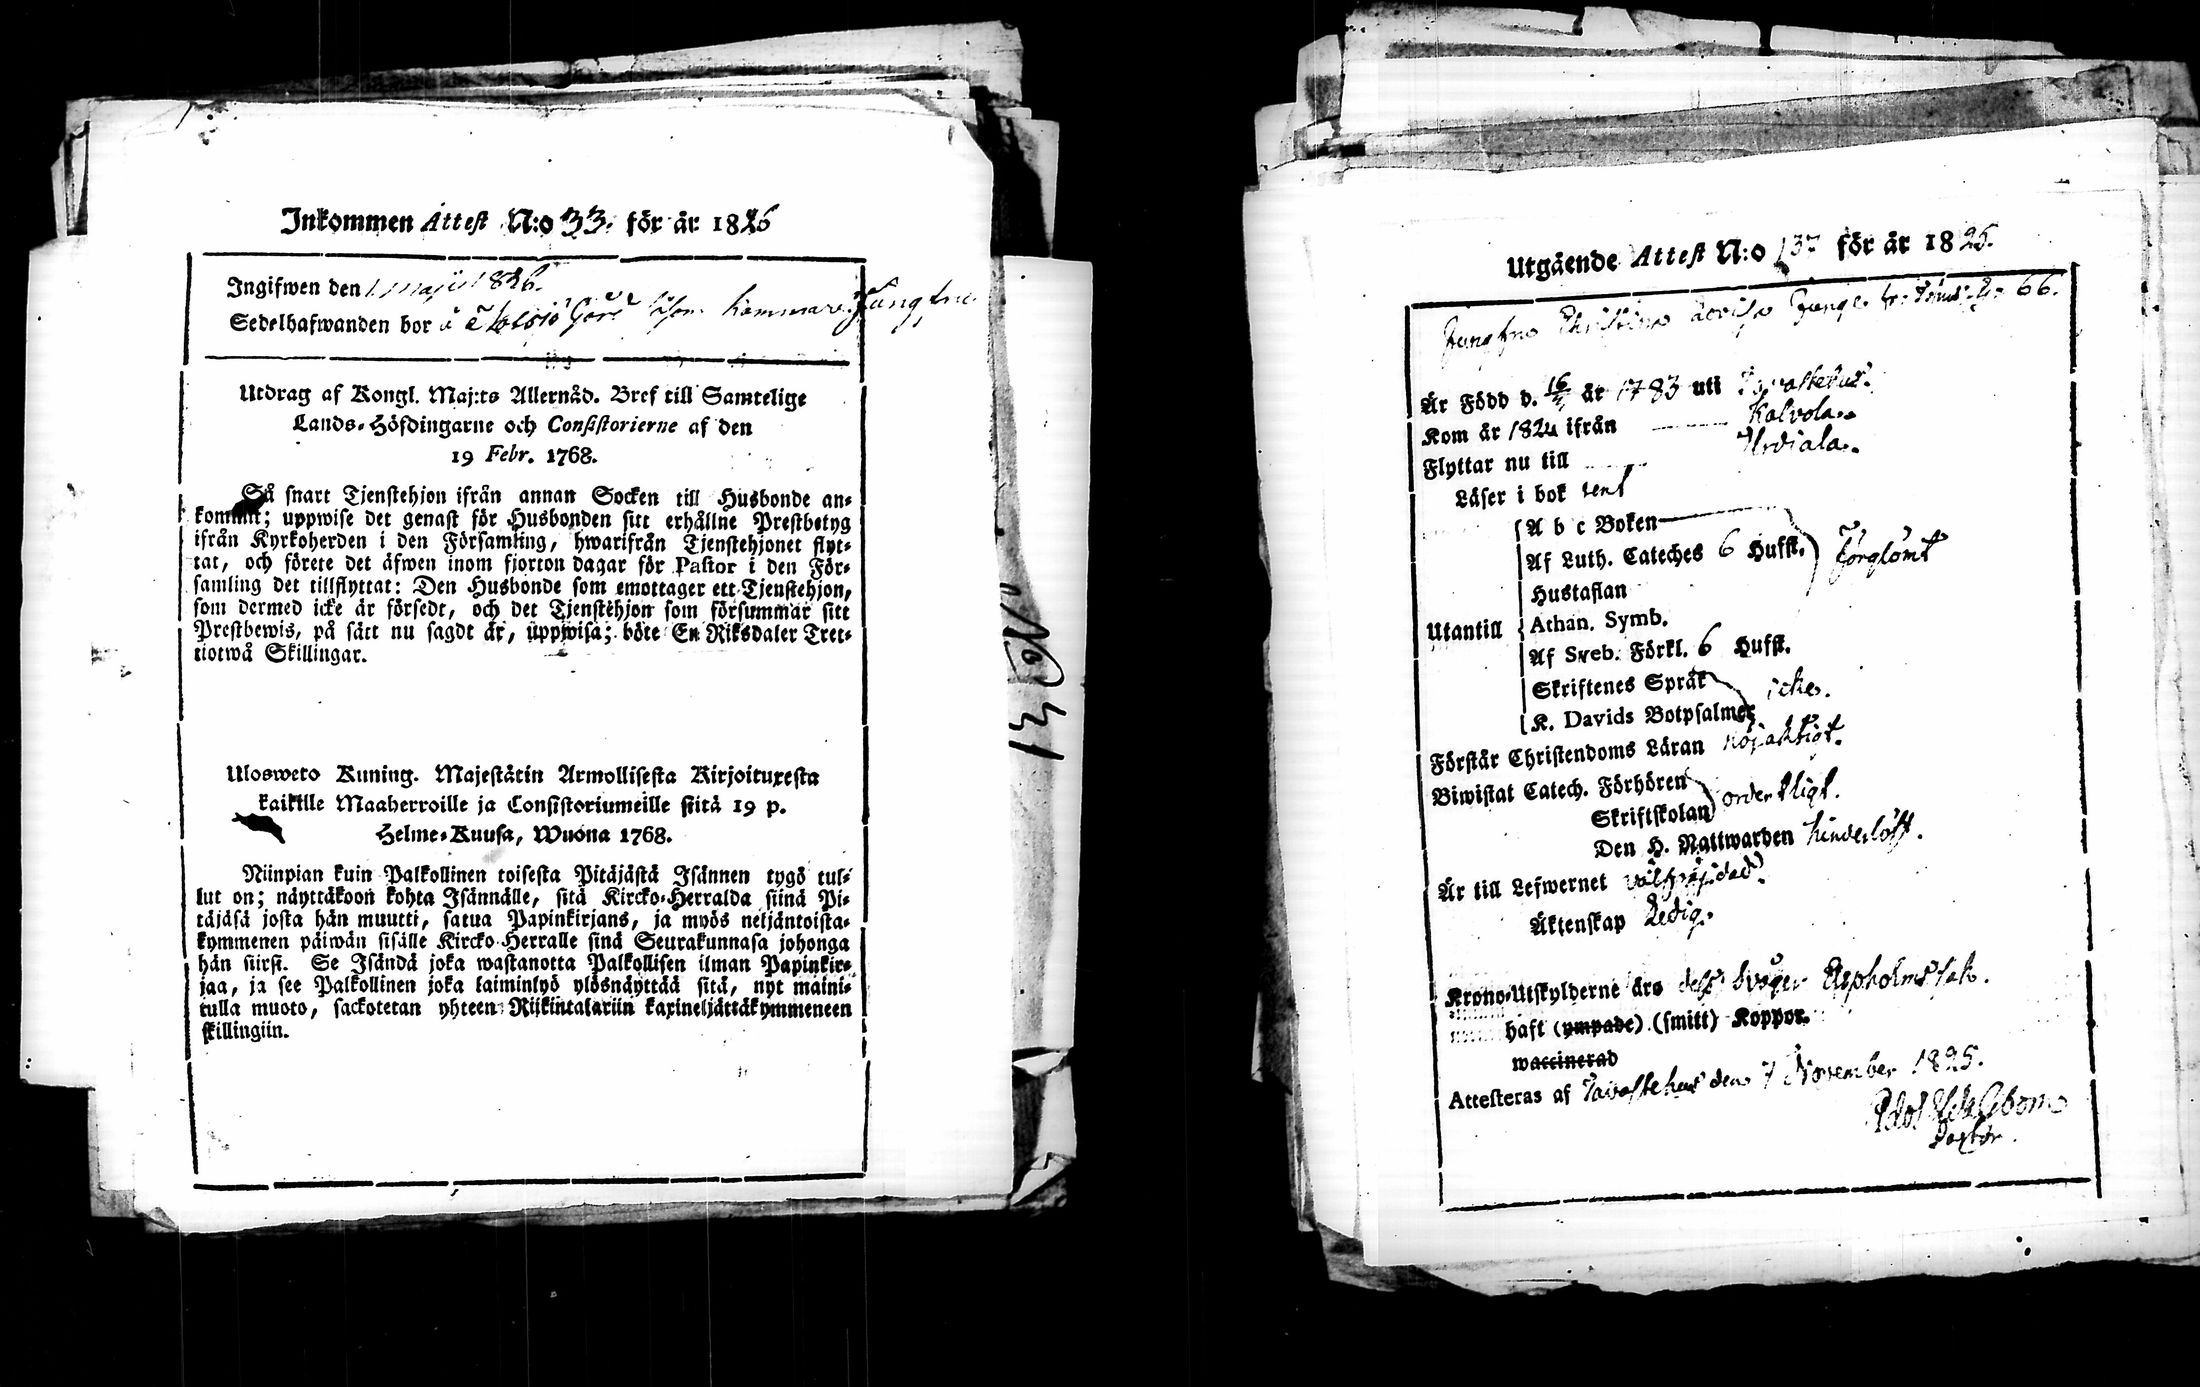 Inkommen Attest N:o 33. för år 1826
Ingifwen den 1 maji 1826.
Sedelhafwanden bor å Gård som kammarJungfru
Utdrag af Kongl. Maj:ts Allernåd. Bref till Samtelige
Lands-Höfdingarne och Consistorierne af den
19 Febr. 1768.
Så snart Tjenstehjon ifrån annan Socken till Husbonde an-
kommit; uppwise det genast för Husbonden sitt erhållne Prestbetyg
ifrån Kyrkoherden i den Församling, hwarifrån Tjenstehjonet flyt-
tat, och förete det äfwen inom fjorton dagar för Pastor i den För-
samling det tillflyttat: Den Husbonde som emottager ett Tjenstehjon,
som dermed icke är försedt, och det Tjenstehjon som försummar sitt
Prestbewis, på sätt nu sagdt är, uppwisa; böte En Riksdaler Tret-
tiotwå Skillingar.
Ulosweto Kuning. Majestätin Armollisesta Kirjoituxesta
kaikille Maaherroille ja Consistoriumeille siitä 19 p.
Helme-Kuusa, Wuona 1768.
Niinpian kuin Palkollinen toisesta Pitäjästä Isännen tygö tul-
lut on; näyttäkoon kohta Isännälle, sitä Kircko-Herralda siinä Pi-
täjäsä josta hän muutti, saatua Papinkirjans, ja myös neljäntoista-
kymmenen päiwän sisälle Kircko Herralle sinä Seurakunnasa johonga
hän siirsi. Se Isändä joka wastanotta Palkollisen ilman Papinkir-
jaa, ja see Palkollinen joka laiminlyö ylösnäyttää sitä, nyt maini-
tulla muoto, sackotetan yhteen Riikintalariin kaxineljättäkymmeneen
skillingiin.
No 31
Utgående Attest N:o 137 för år 1825.
Jungfru Christina Lovisa Junge fr. 66.
Är Född d. 16 år 1783 uti Tavastehus.
Kom år 1824 ifrån Kalvola
Flyttar nu till Urdiala
Läser i bok rent
Utantill
A b c Boken
Af Luth. Cateches 6 Hufst. Förglömt
Hustaflan
Athan. Symb.
Af Sveb. Förkl. 6 Hufst.
Skriftenes Språk icke.
K. Davids Botpsalmer
Förstår Christendoms Läran nöjaktigt.
Biwistat Catech. Förhören
Skriftskolan ordentligt.
Den H. Nattwarden hinderlöst.
Är till Lefwernet välfrejdad.
Äktenskap Ledig.
Krono-Utskylderne äro dess Svåger sak.
haft (ympade) (smitt) Koppor.
waccinerad
Attesteras af Tavastehus den 7 November 1825.
Pastor.